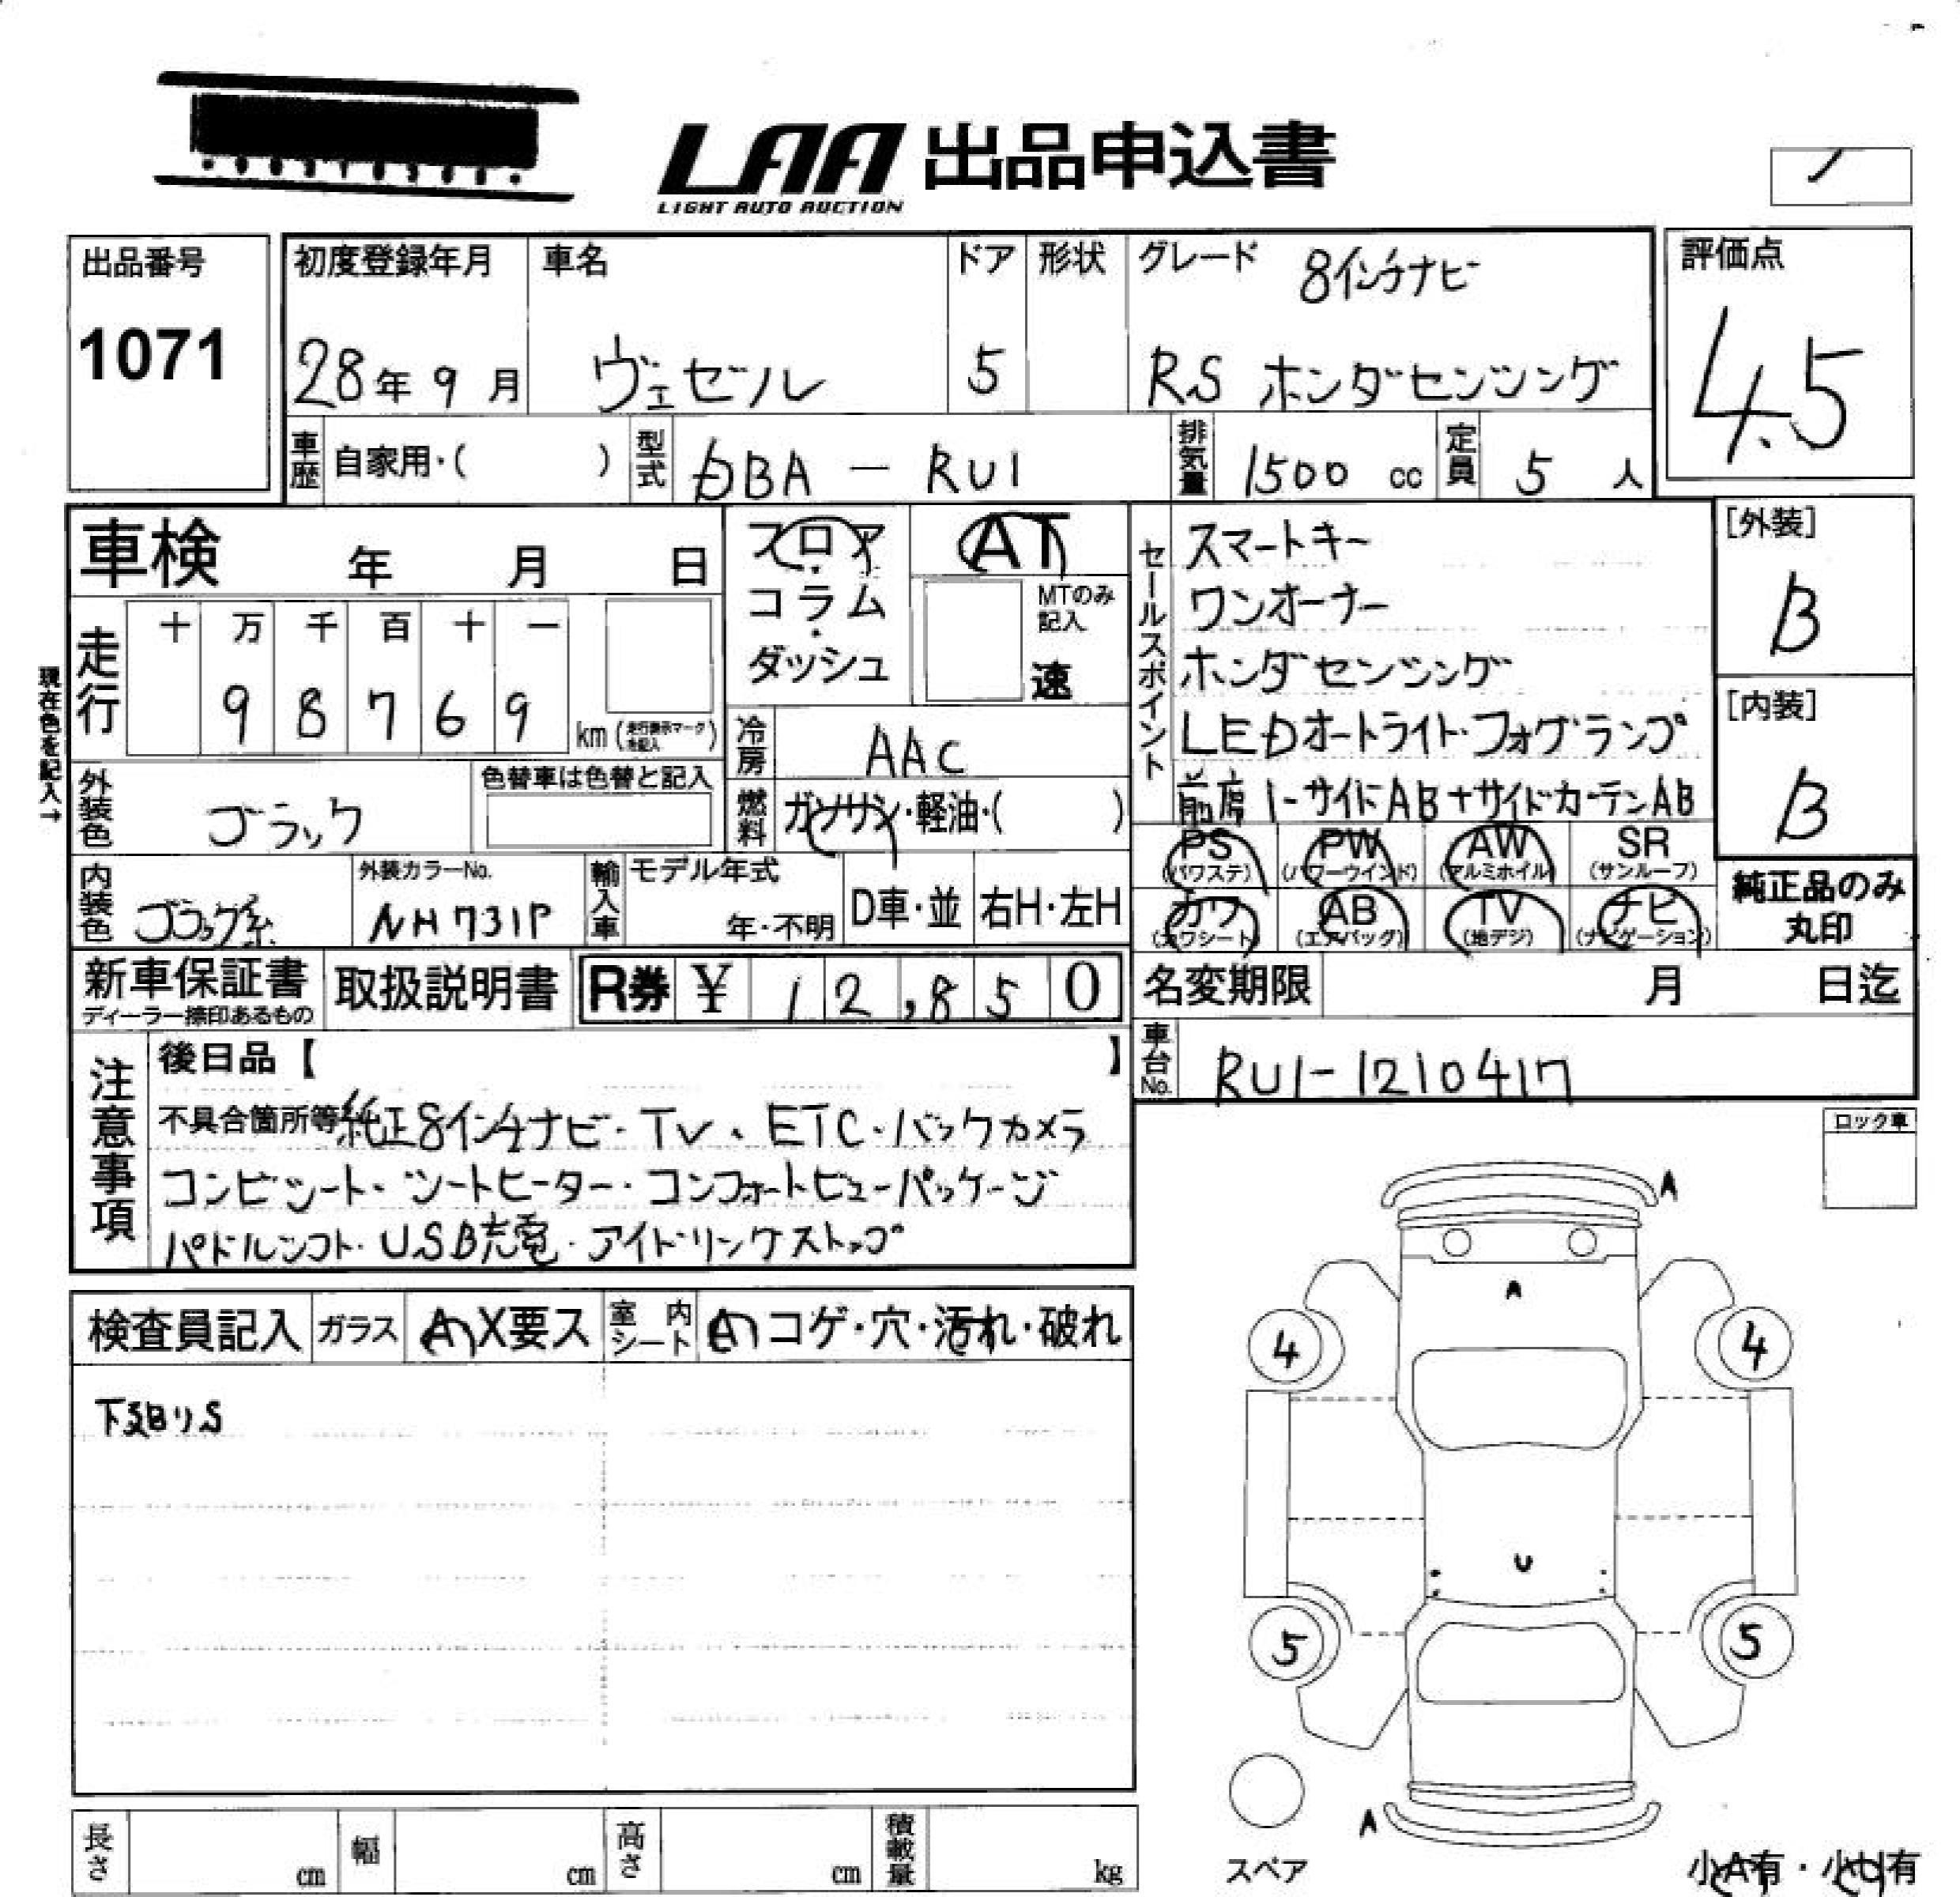 LAA 出品申込書
LIGHT AUTO AUCTION
出品番号
1071
初度登録年月
28年 9月
車名
ヴェゼル
ドア
5
形状
グレード
8インチナビ
RS ホンダセンシング
評価点
4.5
車歴
自家用・( )
型式
DBA - RU1
排気量
1500 cc
定員
5 人
車検 年 月 日
フロア・コラム・ダッシュ
AT
MTのみ記入
速
セールスポイント
スマートキー
ワンオーナー
ホンダセンシング
LEDオートライト・フォグランプ
前席i-サイドAB+サイドカーテンAB
[外装]
B
[内装]
B
現在色を記入→
走行
十 万 千 百 十 一
9 8 7 6 9
km (走行表示マークを記入)
冷房
AAC
燃料
ガソリン・軽油・( )
外装色
ブラック
色替車は色替と記入
PS (パワステ)
PW (パワーウインド)
AW (アルミホイル)
SR (サンルーフ)
カワ (カワシート)
AB (エアバッグ)
TV (地デジ)
ナビ (ナビゲーション)
純正品のみ丸印
内装色
ブラック系
外装カラーNo.
NH731P
輸入車
モデル年式
年・不明
D車・並
右H・左H
新車保証書
ディーラー捺印あるもの
取扱説明書
R券 ¥ 12,850
名変期限 月 日迄
車台No.
RU1-1210417
注意事項
後日品【 】
不具合箇所等 純正8インチナビ・TV・ETC・バックカメラ
コンビシート・シートヒーター・コンフォートビューパッケージ
パドルシフト・USB充電・アイドリングストップ
ロック車
検査員記入
ガラス
A X要ス
室内シート
コゲ・穴・汚れ・破れ
下廻りS
A
A
4
4
U
5
5
A
スペア
小A有・小U有
長さ cm
幅 cm
高さ cm
積載量 kg